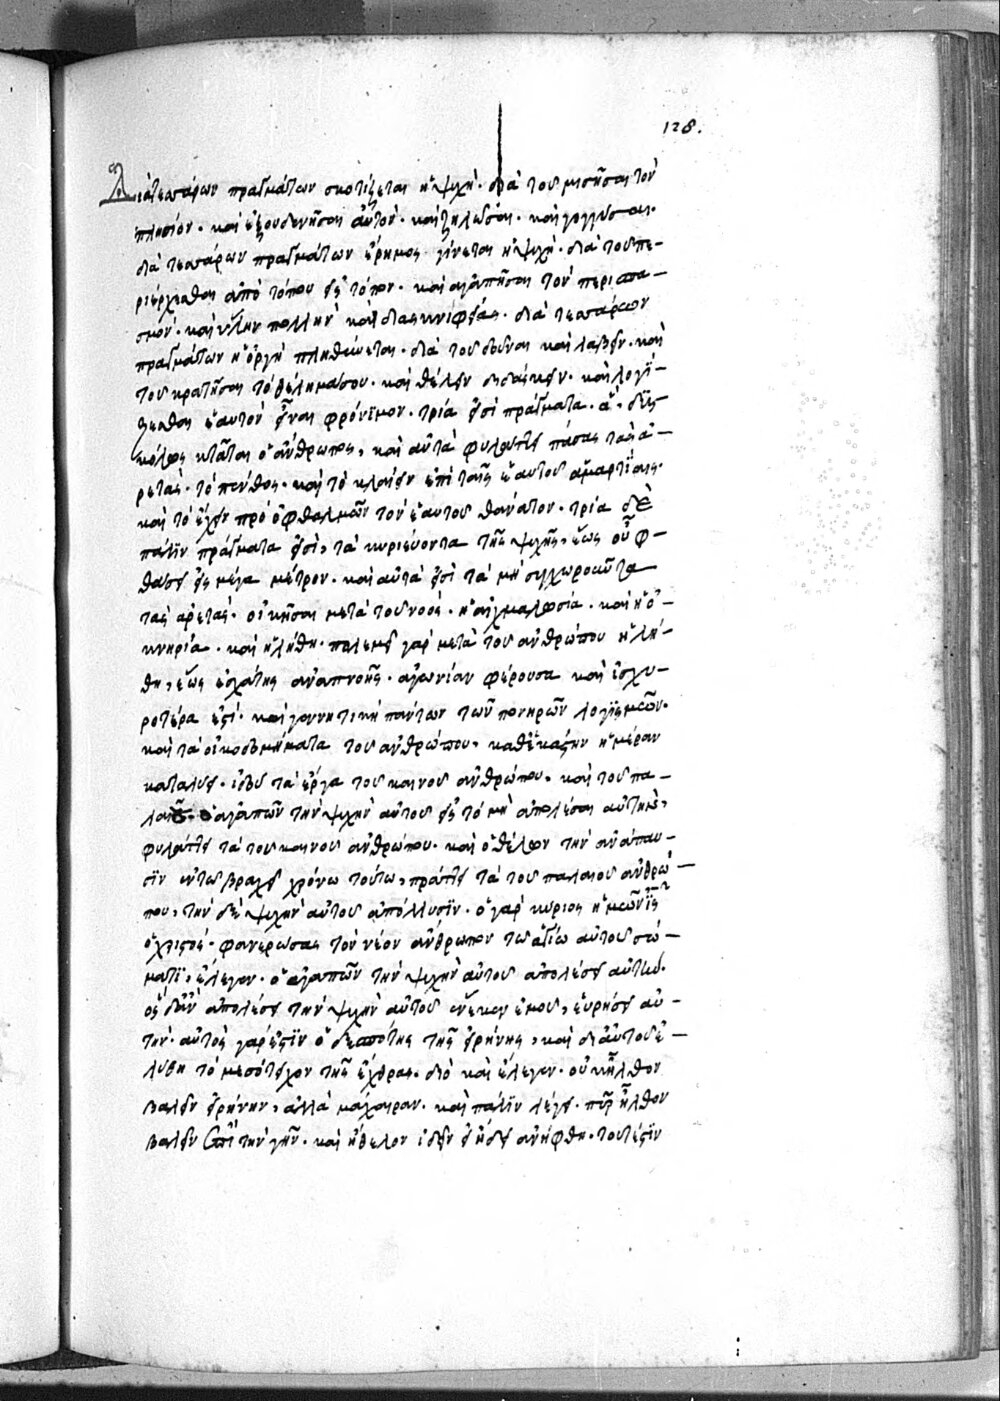 128.
Διατεσσάρων πραγμάτων σκοτίζεται ἡ ψυχή· διὰ τοῦ μισῆσαι τὸν
πλησίον· καὶ ἐξουδενῆσαι αὐτὸν· καὶ ζηλῶσαι· καὶ γογγύσαι·
διὰ τεσσάρων πραγμάτων ἔρημος γίνεται ἡ ψυχή· διὰ τοῦ πε-
ριέρχεσθαι ἀπὸ τόπου εἰς τόπον· καὶ ἀγαπῆσαι τὸν περισπα-
σμὸν· καὶ ὕλην πολλὴν καὶ διασκνιφείας· διὰ τεσσάρων
πραγμάτων ἡ ὀργὴ πληθύνεται· διὰ τοῦ δοῦναι καὶ λαβεῖν· καὶ
τοῦ κρατῆσαι τὸ θέλημά σου· καὶ θέλειν διδάσκειν· καὶ λογί-
ζεσθαι ἑαυτὸν εἶναι φρόνιμον· τρία εἰσὶ πράγματα· ἃ δυς
κόλως κτᾶται ὁ ἄνθρωπος, καὶ αὐτὰ φυλάττει πάσας τὰς ἀ-
ρετάς· τὸ πένθος· καὶ τὸ κλαίειν ἐπὶ ταῖς ἑαυτοῦ ἁμαρτίαις·
καὶ τὸ ἔχειν πρὸ ὀφθαλμῶν τὸν ἑαυτοῦ θάνατον· τρία δὲ
πάλιν πράγματα εἰσὶ, τὰ κυριεύοντα τῆς ψυχῆς, ἕως οὗ φ-
θάσει εἰς μέγα μέτρον· καὶ αὐτὰ εἰσὶ τὰ μὴ συγχωροῦντα
τὰς ἀρετὰς· οἰκῆσαι μετὰ τοῦ νοός· ἡ αἰχμαλωσία· καὶ ἡ ὀ-
κνηρία· καὶ ἡ λήθη· πολεμεῖ γὰρ μετὰ τοῦ ἀνθρώπου ἡ λή-
θη, ἕως ἐσχάτης ἀναπνοῆς· ἀγωνίαν φέρουσα καὶ ἰσχυ-
ροτέρα ἐστί· καὶ γεννητικὴ πάντων τῶν πονηρῶν λογισμῶν·
καὶ τὰ οἰκοδομήματα τοῦ ἀνθρώπου, καθεκάστην ἡμέραν
καταλύει· ἰδοὺ τὰ ἔργα τοῦ καινοῦ ἀνθρώπου· καὶ τοῦ πα-
λαιοῦ· ὁ ἀγαπῶν τὴν ψυχὴν αὐτοῦ εἰς τὸ μὴ ἀπολέσαι αὐτὴν,
φυλάττει τὰ τοῦ καινοῦ ἀνθρώπου· καὶ ὁ θέλων τὴν ἀνάπαυ-
σιν ἐν τῷ βραχεῖ χρόνω τούτω, πράττει τὰ τοῦ παλαιοῦ ἀνθρώ-
που, τὴν δὲ ψυχὴν αὐτοῦ ἀπόλλυσιν· ὁ γὰρ κύριος ἡμῶν ις
ὁ χριστός· φανερώσας τὸν νέον ἄνθρωπον τῶ ἁγίω αὐτοῦ σώ-
ματι, ἔλεγεν· ὁ ἀγαπῶν τὴν ψυχὴν αὐτοῦ ἀπολέσει αὐτὴν·
ὃς δἂν ἀπολέσει τὴν ψυχὴν αὐτοῦ ἕνεκεν ἐμοῦ, εὑρήσει αὐ-
τὴν· αὐτὸς γάρ ἐστιν ὁ δεσπότης τῆς εἰρήνης, καὶ δι αὐτοῦ ἐ-
λύθη τὸ μεσότειχον τῆς ἔχθρας· διὸ καὶ ἔλεγεν· οὐκ ἦλθον
βαλεῖν εἰρήνην, ἀλλὰ μάχαιραν· καὶ πάλιν λέγει· πῦρ ἦλθον
βαλεῖν ἐπὶ τὴν γῆν· καὶ ἤθελον ἰδεῖν εἰ ἤδει ἀνήφθη· τουτέστιν